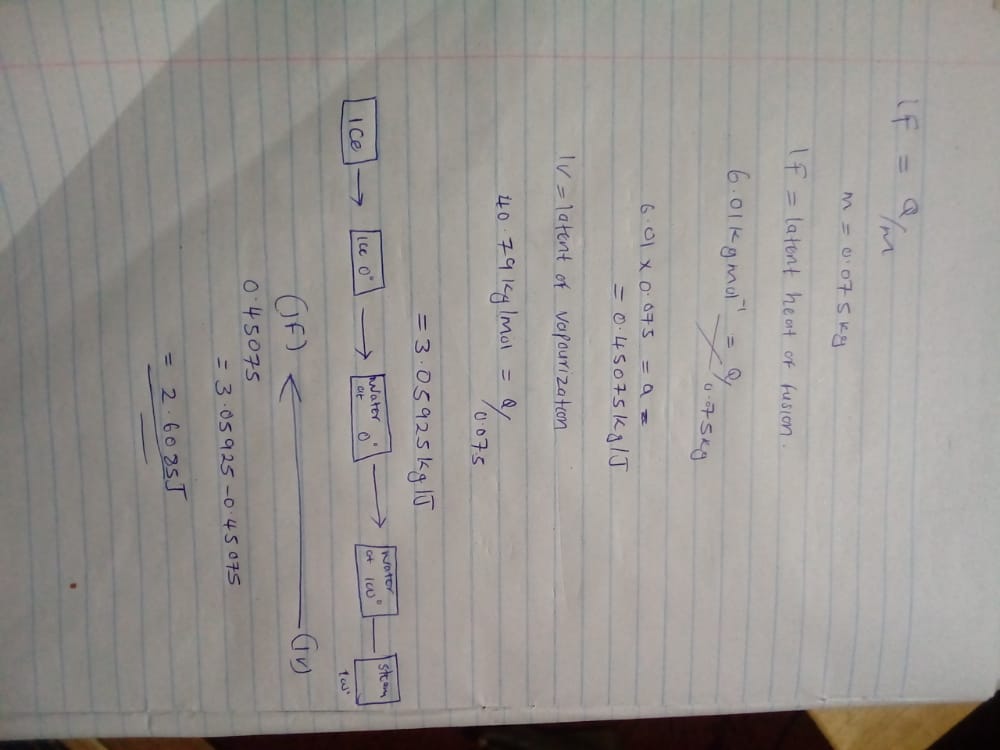 lf = Q/m
m = 0.075 kg
lf = latent heat of fusion.
6.01 kg mol⁻¹ = Q/0.075kg
6.01 x 0.075 = Q =
= 0.45075 kg/J
lv = latent of vapourization
40.79 kg/mol = Q/0.075
= 3.05925 kg/J
ice → ice 0° → Water at 0° → Water at 100° — Steam 100°
(lf) ← (lv)
0.45075
= 3.05925 - 0.45075
= 2.6085J